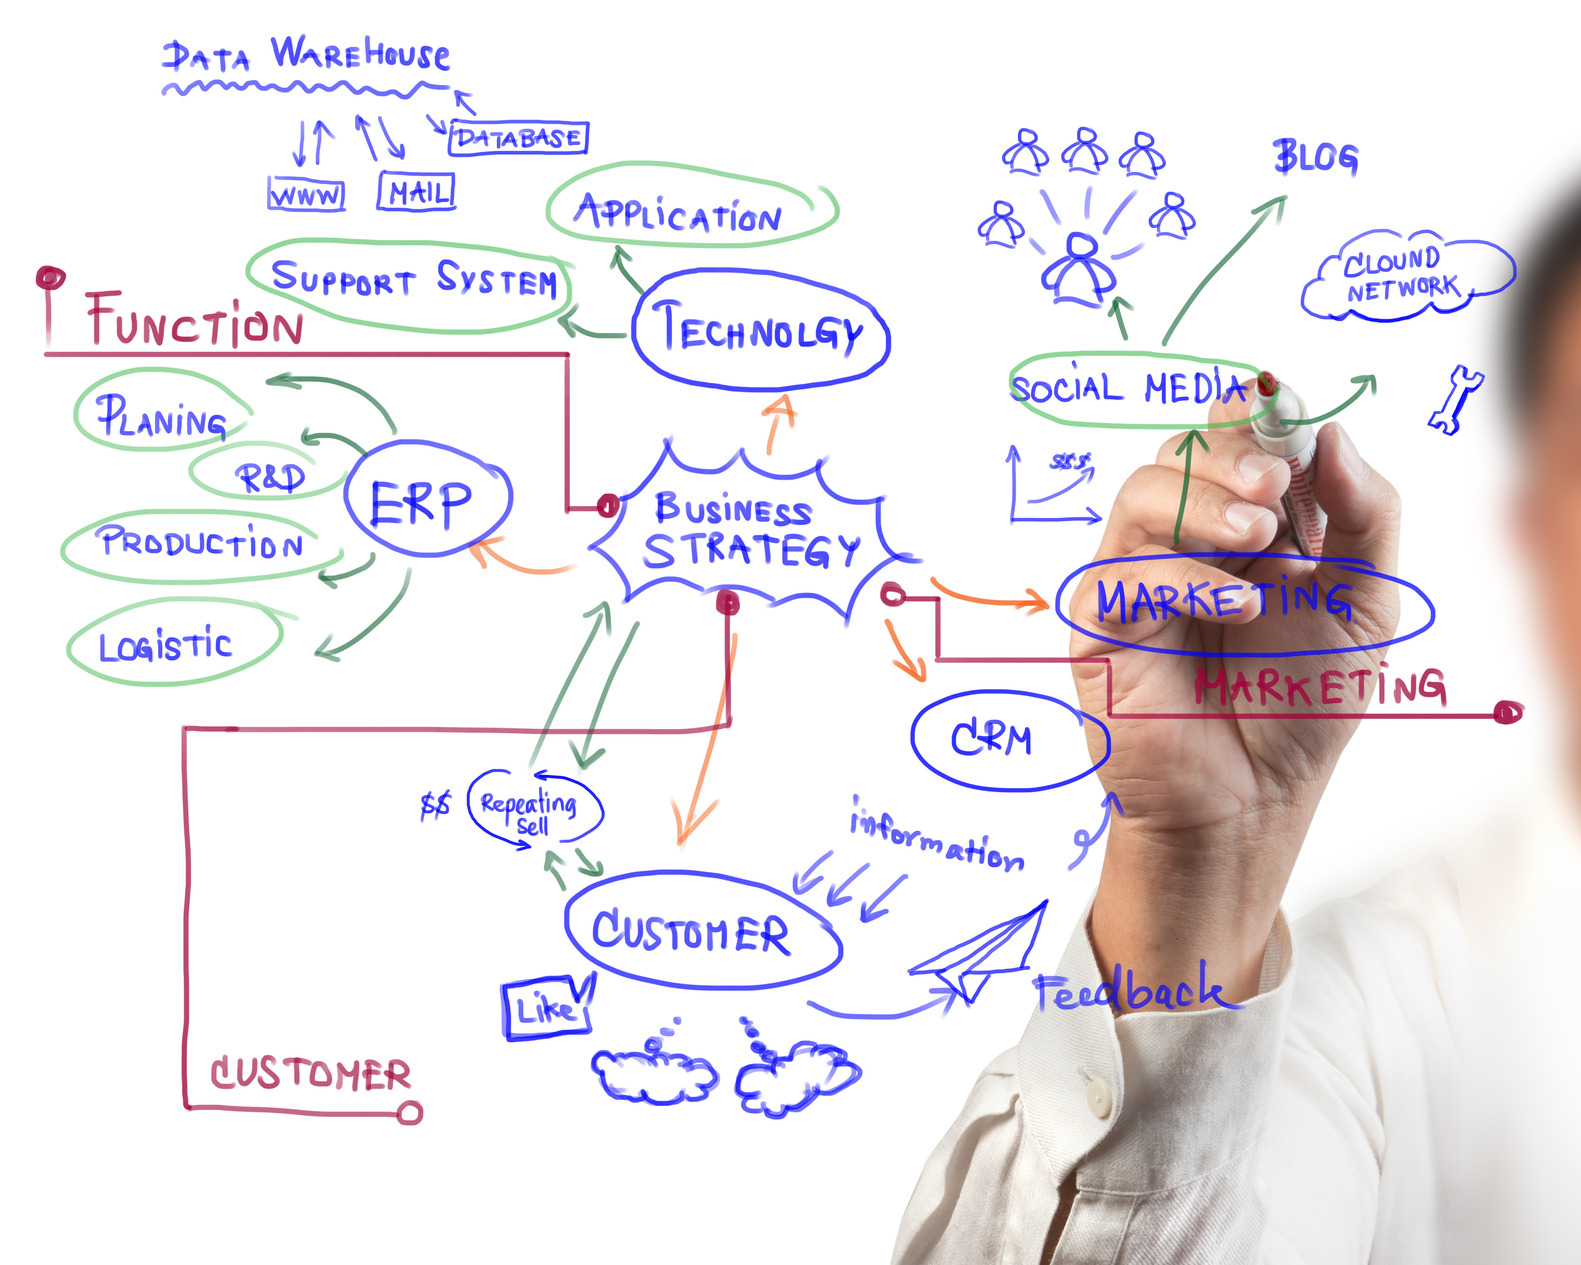 DATA WAREHOUSE
DATABASE
WWW
MAIL
APPLICATION
SUPPORT SYSTEM
FUNCTION
TECHNOLGY
PLANING
R&D
ERP
PRODUCTION
LOGISTIC
BUSINESS
STRATEGY
BLOG
CLOUND
NETWORK
SOCIAL MEDIA
$$$
MARKETING
MARKETING
CRM
$$
Repeating
Sell
information
CUSTOMER
Like
Feedback
CUSTOMER